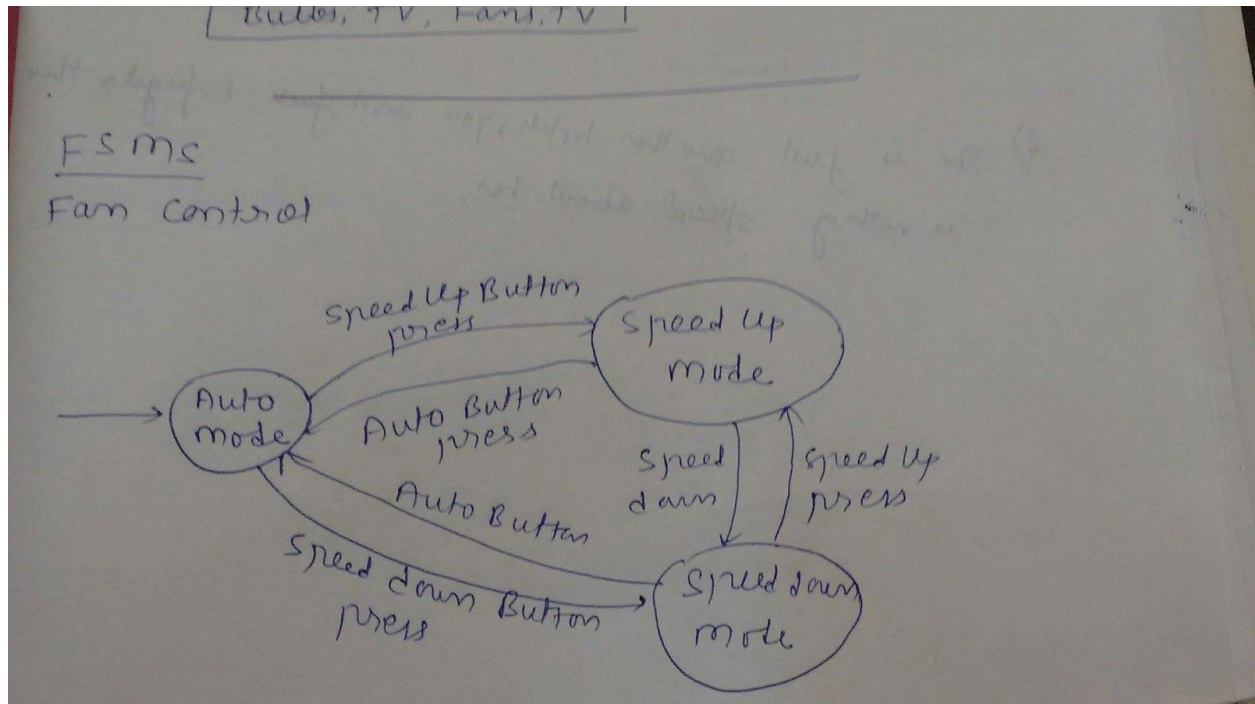 Bulbs, TV, Fans, TV
FSMs
Fan Control
Speed Up Button
press
Speed Up
mode
Auto
mode
Auto Button
press
Speed
down
Speed Up
press
Auto Button
Speed down Button
press
Speed down
mode